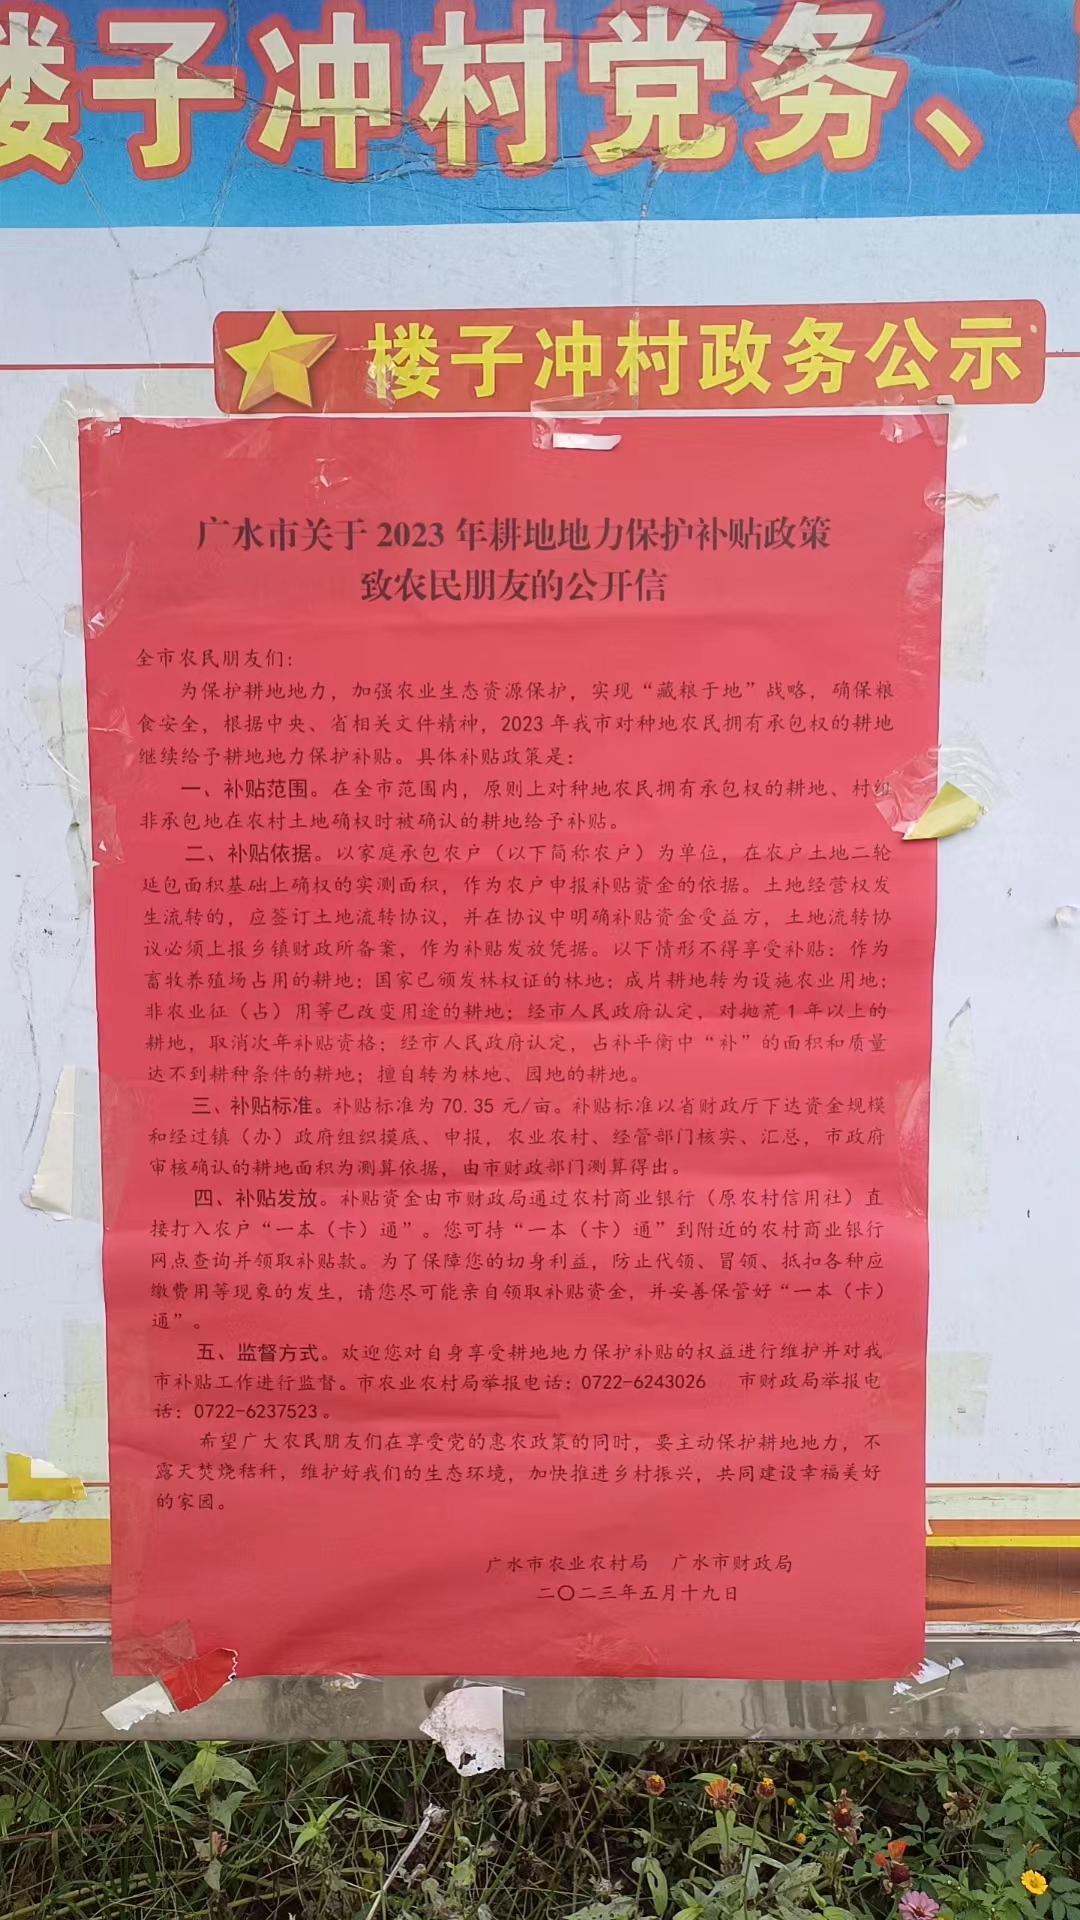 楼子冲村党务、
楼子冲村政务公示
广水市关于 2023 年耕地地力保护补贴政策
致农民朋友的公开信
全市农民朋友们：
为保护耕地地力，加强农业生态资源保护，实现“藏粮于地”战略，确保粮
食安全，根据中央、省相关文件精神，2023 年我市对种地农民拥有承包权的耕地
继续给予耕地地力保护补贴。具体补贴政策是：
一、补贴范围。在全市范围内，原则上对种地农民拥有承包权的耕地、村组
非承包地在农村土地确权时被确认的耕地给予补贴。
二、补贴依据。以家庭承包农户（以下简称农户）为单位，在农户土地二轮
延包面积基础上确权的实测面积，作为农户申报补贴资金的依据。土地经营权发
生流转的，应签订土地流转协议，并在协议中明确补贴资金受益方，土地流转协
议必须上报乡镇财政所备案，作为补贴发放凭据。以下情形不得享受补贴：作为
畜牧养殖场占用的耕地；国家已颁发林权证的林地；成片耕地转为设施农业用地；
非农业征（占）用等已改变用途的耕地；经市人民政府认定，对抛荒 1 年以上的
耕地，取消次年补贴资格；经市人民政府认定，占补平衡中“补”的面积和质量
达不到耕种条件的耕地；擅自转为林地、园地的耕地。
三、补贴标准。补贴标准为 70.35 元/亩。补贴标准以省财政厅下达资金规模
和经过镇（办）政府组织摸底、申报，农业农村、经管部门核实、汇总，市政府
审核确认的耕地面积为测算依据，由市财政部门测算得出。
四、补贴发放。补贴资金由市财政局通过农村商业银行（原农村信用社）直
接打入农户“一本（卡）通”。您可持“一本（卡）通”到附近的农村商业银行
网点查询并领取补贴款。为了保障您的切身利益，防止代领、冒领、抵扣各种应
缴费用等现象的发生，请您尽可能亲自领取补贴资金，并妥善保管好“一本（卡）
通”。
五、监督方式。欢迎您对自身享受耕地地力保护补贴的权益进行维护并对我
市补贴工作进行监督。市农业农村局举报电话：0722-6243026 市财政局举报电
话：0722-6237523。
希望广大农民朋友们在享受党的惠农政策的同时，要主动保护耕地地力，不
露天焚烧秸秆，维护好我们的生态环境，加快推进乡村振兴，共同建设幸福美好
的家园。
广水市农业农村局 广水市财政局
二〇二三年五月十九日